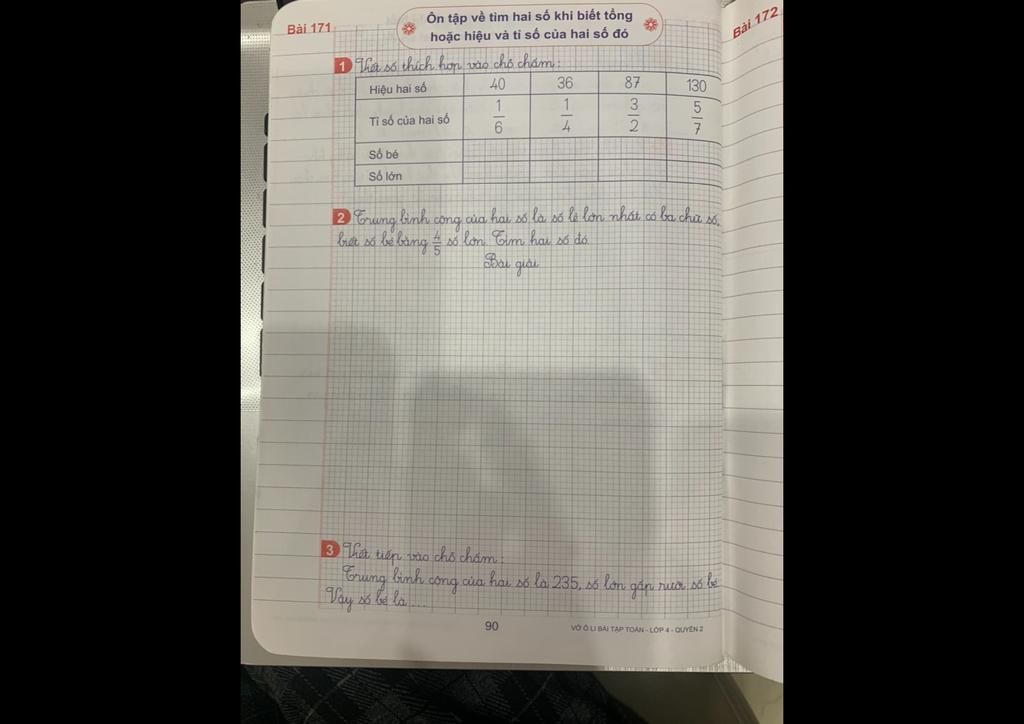 Bài 171
Ôn tập về tìm hai số khi biết tổng
hoặc hiệu và tỉ số của hai số đó
Bài 172
1 Viết số thích hợp vào chỗ chấm:
Hiệu hai số 40 36 87 130
Tỉ số của hai số 1/6 1/4 3/2 5/7
Số bé
Số lớn
2 Trung bình cộng của hai số là số lẻ lớn nhất có ba chữ số,
biết số bé bằng 4/5 số lớn. Tìm hai số đó.
Bài giải
3 Viết tiếp vào chỗ chấm:
Trung bình cộng của hai số là 235, số lớn gấp rưỡi số bé.
Vậy số bé là ....
90
VỞ Ô LI BÀI TẬP TOÁN - LỚP 4 - QUYỂN 2